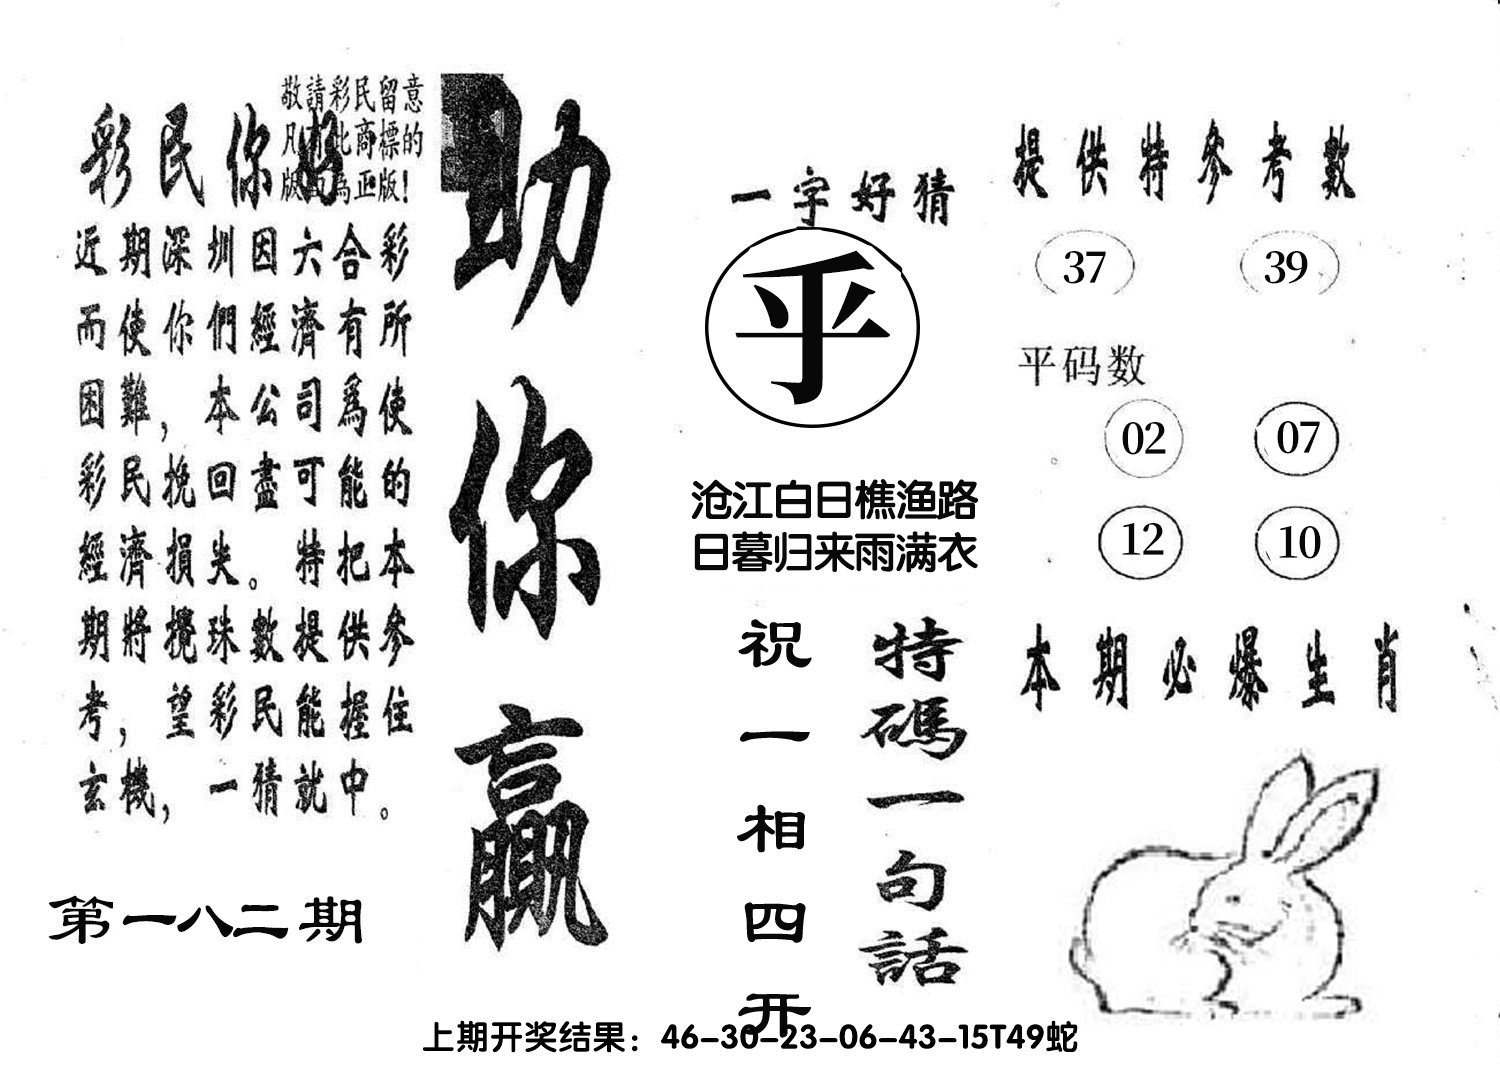 敬請彩民留意
凡有此商標的
版面為正版！
彩民你好
近期深圳因六合彩
而使你們經濟有所
困難，本公司爲使
彩民挽回盡可能的
經濟損失。特把本
期將攪珠數提供參
考，望彩民能握住
玄機，一猜就中。
第一八二期
助你贏
一字好猜
乎
沧江白日樵渔路
日暮归来雨满衣
特碼一句話
祝一相四开
提供特參考數
37 39
平码数
02 07
12 10
本期必爆生肖
上期开奖结果：46-30-23-06-43-15T49蛇